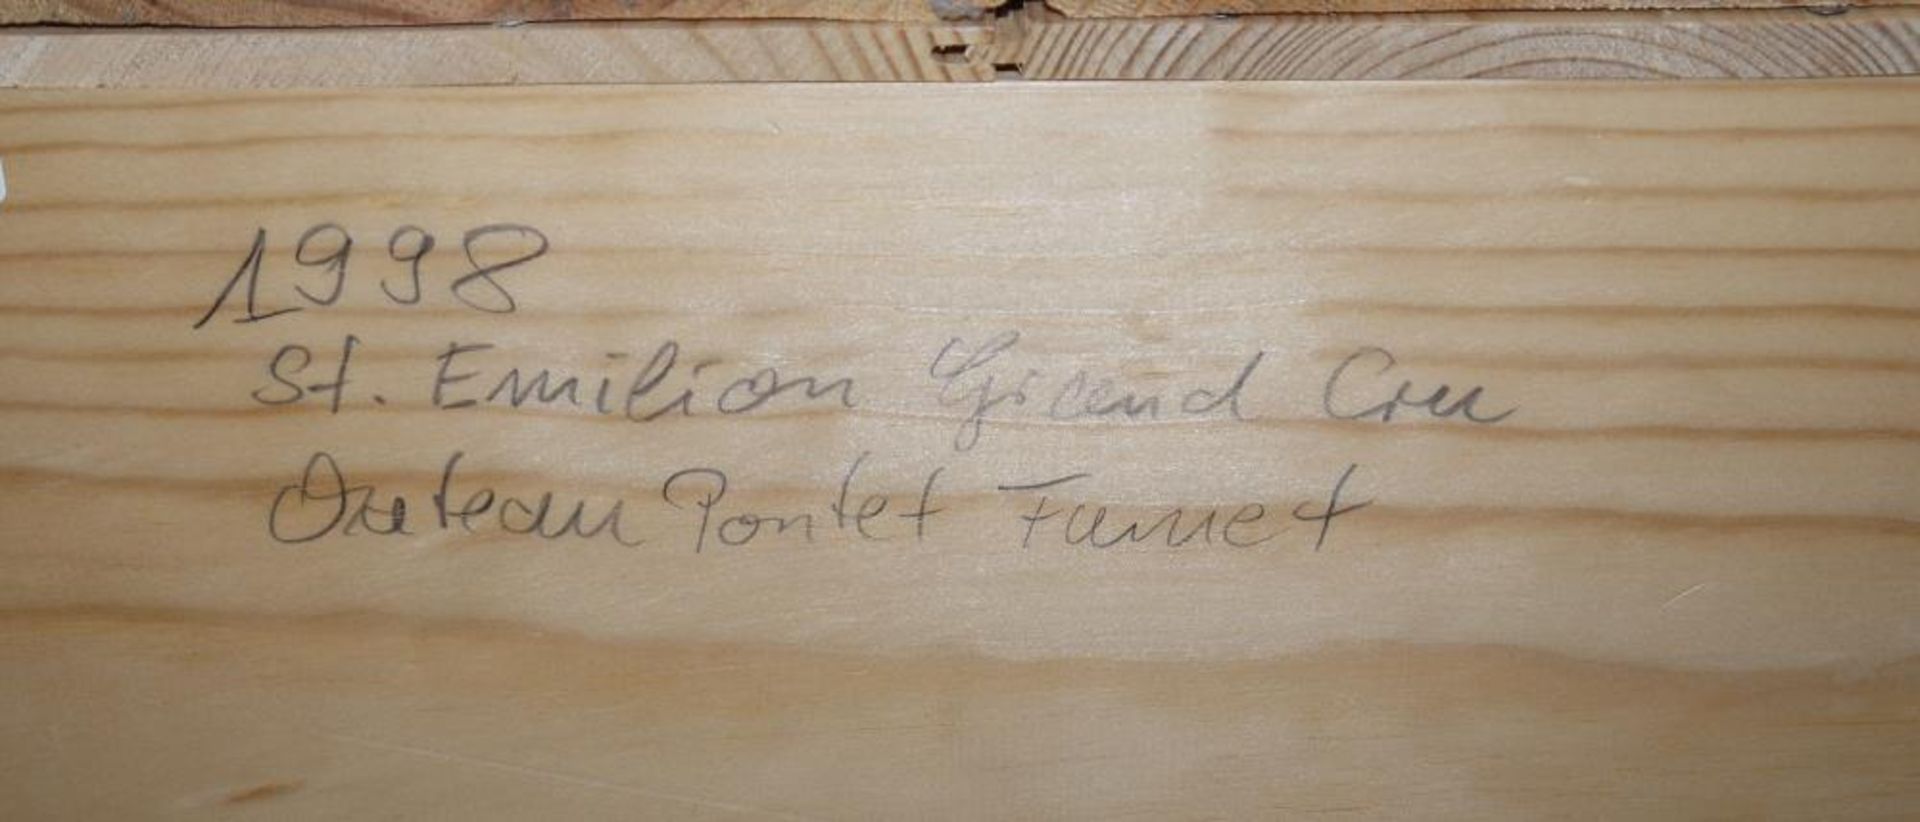 1998
St. Emilion Grand Cru
Chateau Pontet Fumet